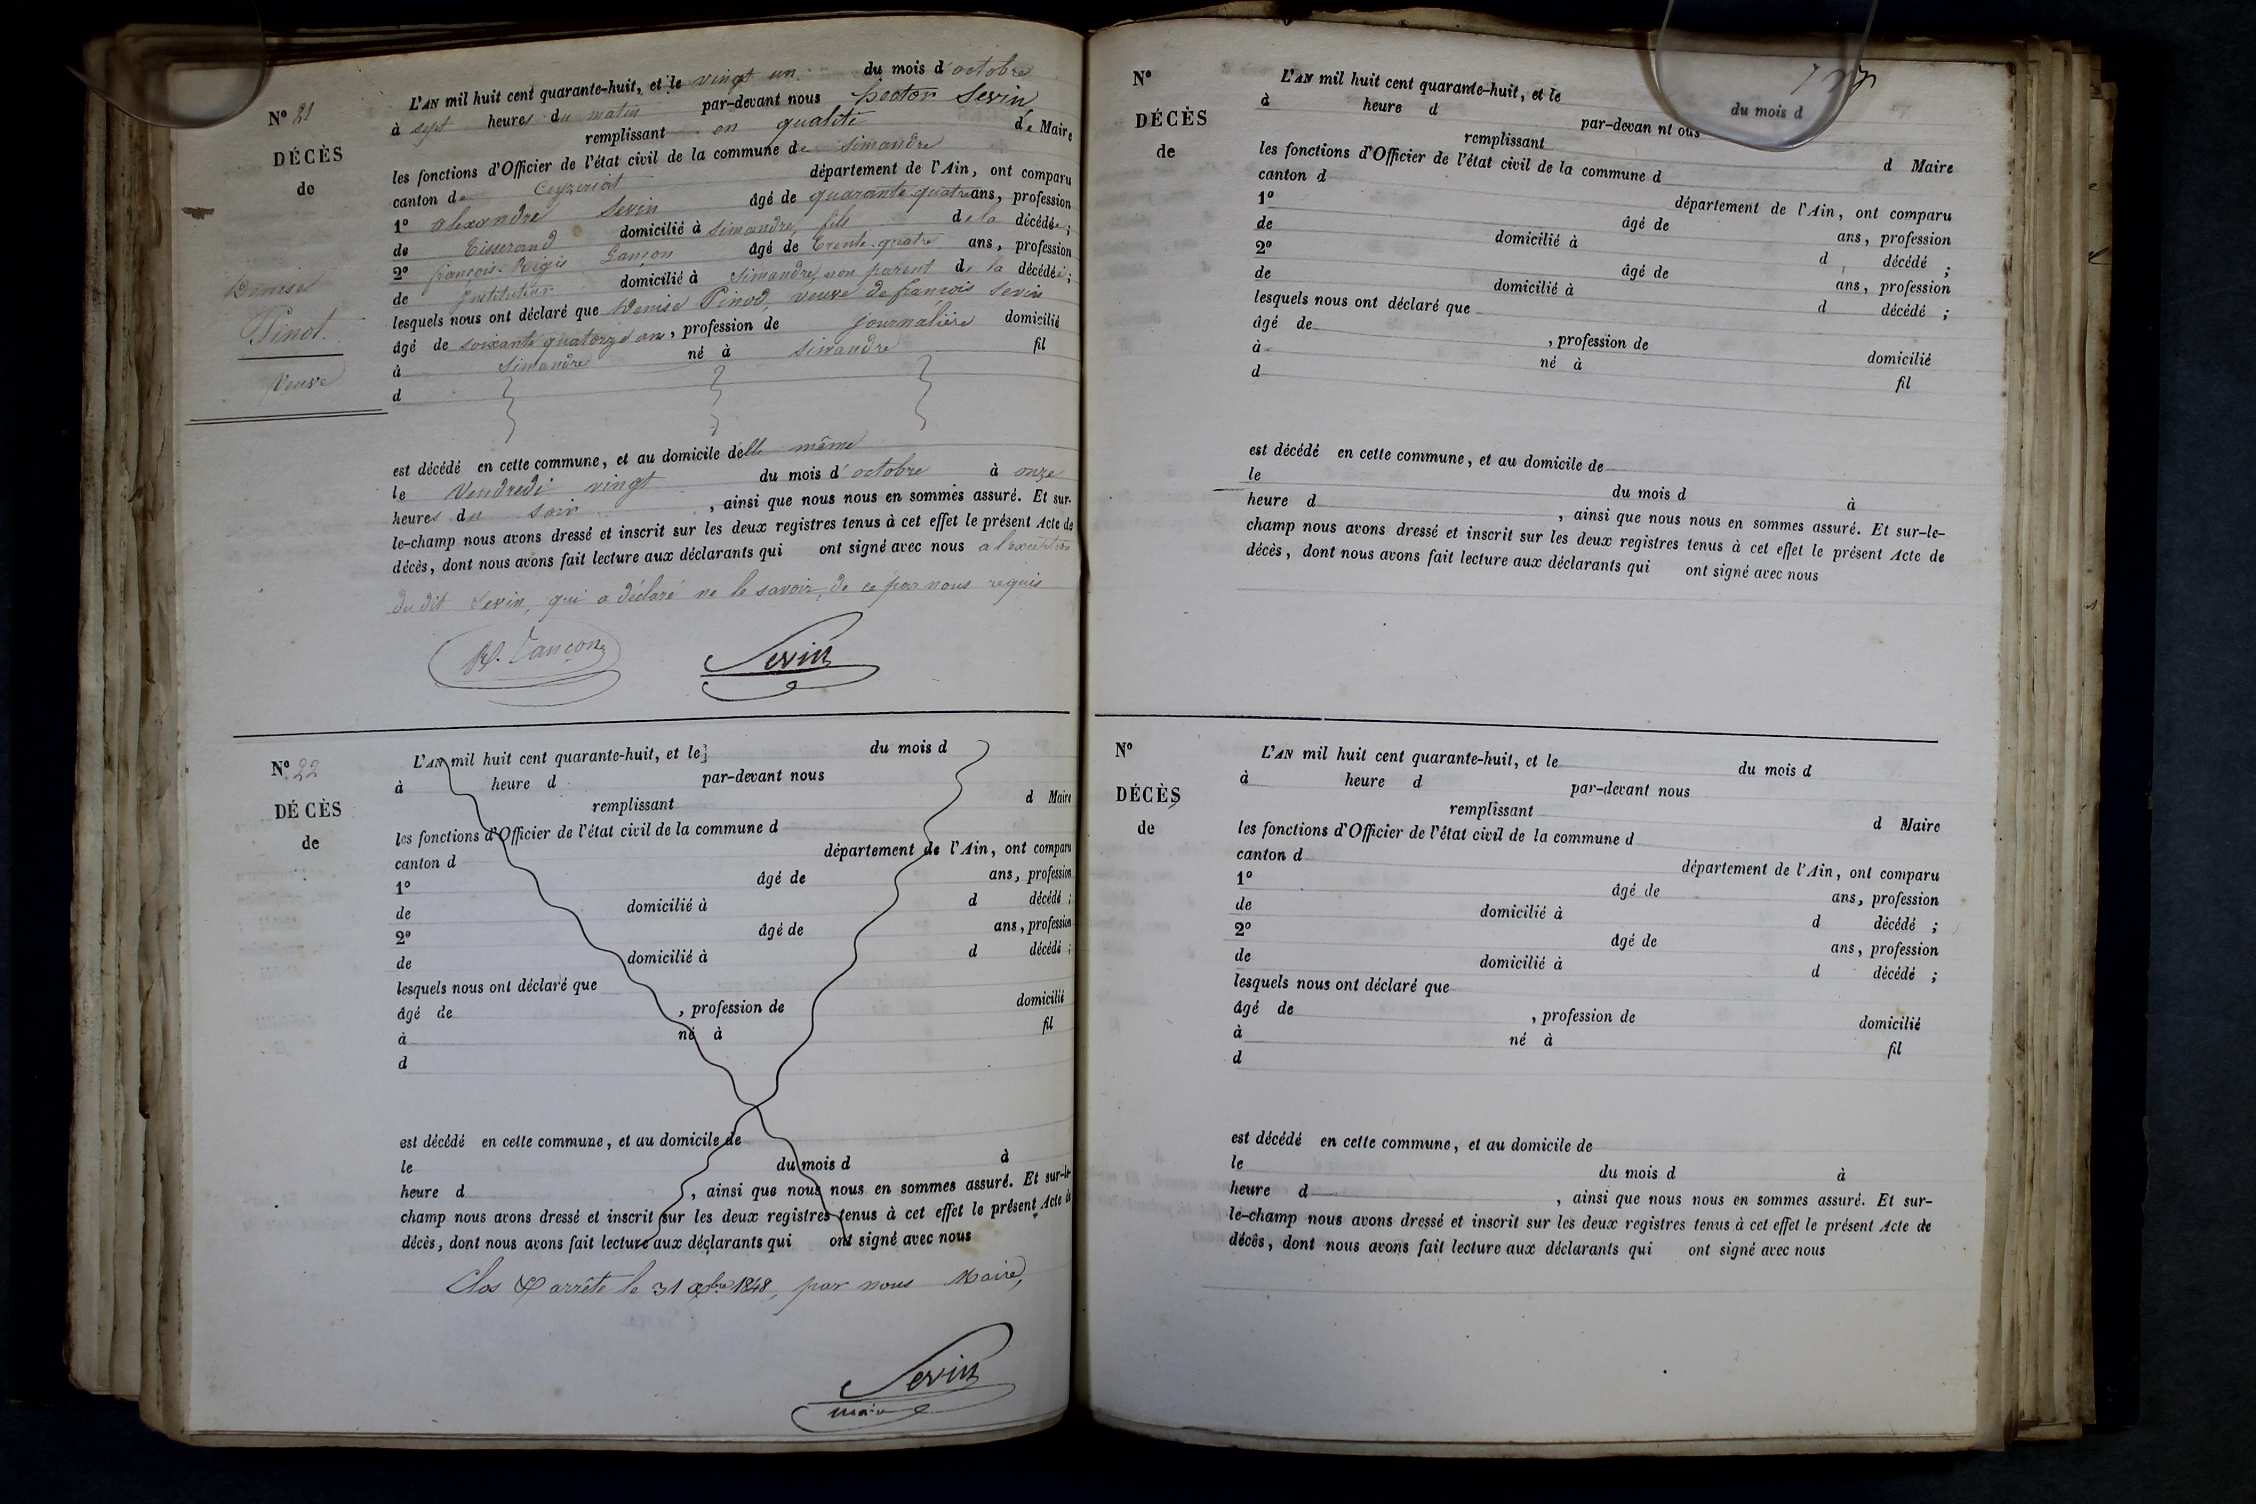 N° 21
DÉCÈS
de
Denise
Pinot.
Veuve
L'AN mil huit cent quarante-huit, et le vingt un du mois d'octobre
à sept heures du matin par-devant nous hector Sevin
remplissant en qualité de Maire
les fonctions d'Officier de l'état civil de la commune de Simandre
canton de Ceyzeriat département de l'Ain, ont comparu
1° alexandre Sevin âgé de quarante quatre ans, profession
de Tisserand domicilié à Simandre, fils de la décédée;
2° françois-Régis Lançon âgé de trente-quatre ans, profession
de Instituteur domicilié à Simandre, non parent de la décédée;
lesquels nous ont déclaré que Denise Pinod, veuve de françois Sevin
âgé de soixante quatorze ans, profession de journalière domicilié
à Simandre né à Simandre fil
d
est décédé en cette commune, et au domicile delle même
le Vendredi vingt du mois d'octobre à onze
heures du soir, ainsi que nous nous en sommes assuré. Et sur-
le-champ nous avons dressé et inscrit sur les deux registres tenus à cet effet le présent Acte de
décès, dont nous avons fait lecture aux déclarants qui ont signé avec nous a l'exception
du dit Sevin, qui a déclaré ne le savoir, de ce par nous requis
R. Lançon Sevin
N° 22
DÉCÈS
de
L'AN mil huit cent quarante-huit, et le du mois d
à heure d par-devant nous
remplissant d Maire
les fonctions d'Officier de l'état civil de la commune d
canton d département de l'Ain, ont comparu
1° âgé de ans, profession
de domicilié à d décédé ;
2° âgé de ans, profession
de domicilié à d décédé ;
lesquels nous ont déclaré que
âgé de , profession de domicilié
à né à fil
d
est décédé en cette commune, et au domicile de
le du mois d à
heure d , ainsi que nous nous en sommes assuré. Et sur-le-
champ nous avons dressé et inscrit sur les deux registres tenus à cet effet le présent Acte de
décès, dont nous avons fait lecture aux déclarants qui ont signé avec nous
Clos & arrêté le 31 Xbre 1848, par nous Maire,
Sevin
maire
N°
DÉCÈS
de
L'AN mil huit cent quarante-huit, et le du mois d
à heure d par-devan nt ous
remplissant d Maire
les fonctions d'Officier de l'état civil de la commune d
canton d département de l'Ain, ont comparu
1° âgé de ans, profession
de domicilié à d décédé ;
2° âgé de ans, profession
de domicilié à d décédé ;
lesquels nous ont déclaré que
âgé de , profession de domicilié
à né à fil
d
est décédé en cette commune, et au domicile de
le du mois d à
heure d , ainsi que nous nous en sommes assuré. Et sur-le-
champ nous avons dressé et inscrit sur les deux registres tenus à cet effet le présent Acte de
décès, dont nous avons fait lecture aux déclarants qui ont signé avec nous
N°
DÉCÈS
de
L'AN mil huit cent quarante-huit, et le du mois d
à heure d par-devant nous
remplissant d Maire
les fonctions d'Officier de l'état civil de la commune d
canton d département de l'Ain, ont comparu
1° âgé de ans, profession
de domicilié à d décédé ;
2° âgé de ans, profession
de domicilié à d décédé ;
lesquels nous ont déclaré que
âgé de , profession de domicilié
à né à fil
d
est décédé en cette commune, et au domicile de
le du mois d à
heure d , ainsi que nous nous en sommes assuré. Et sur-
le-champ nous avons dressé et inscrit sur les deux registres tenus à cet effet le présent Acte de
décès, dont nous avons fait lecture aux déclarants qui ont signé avec nous